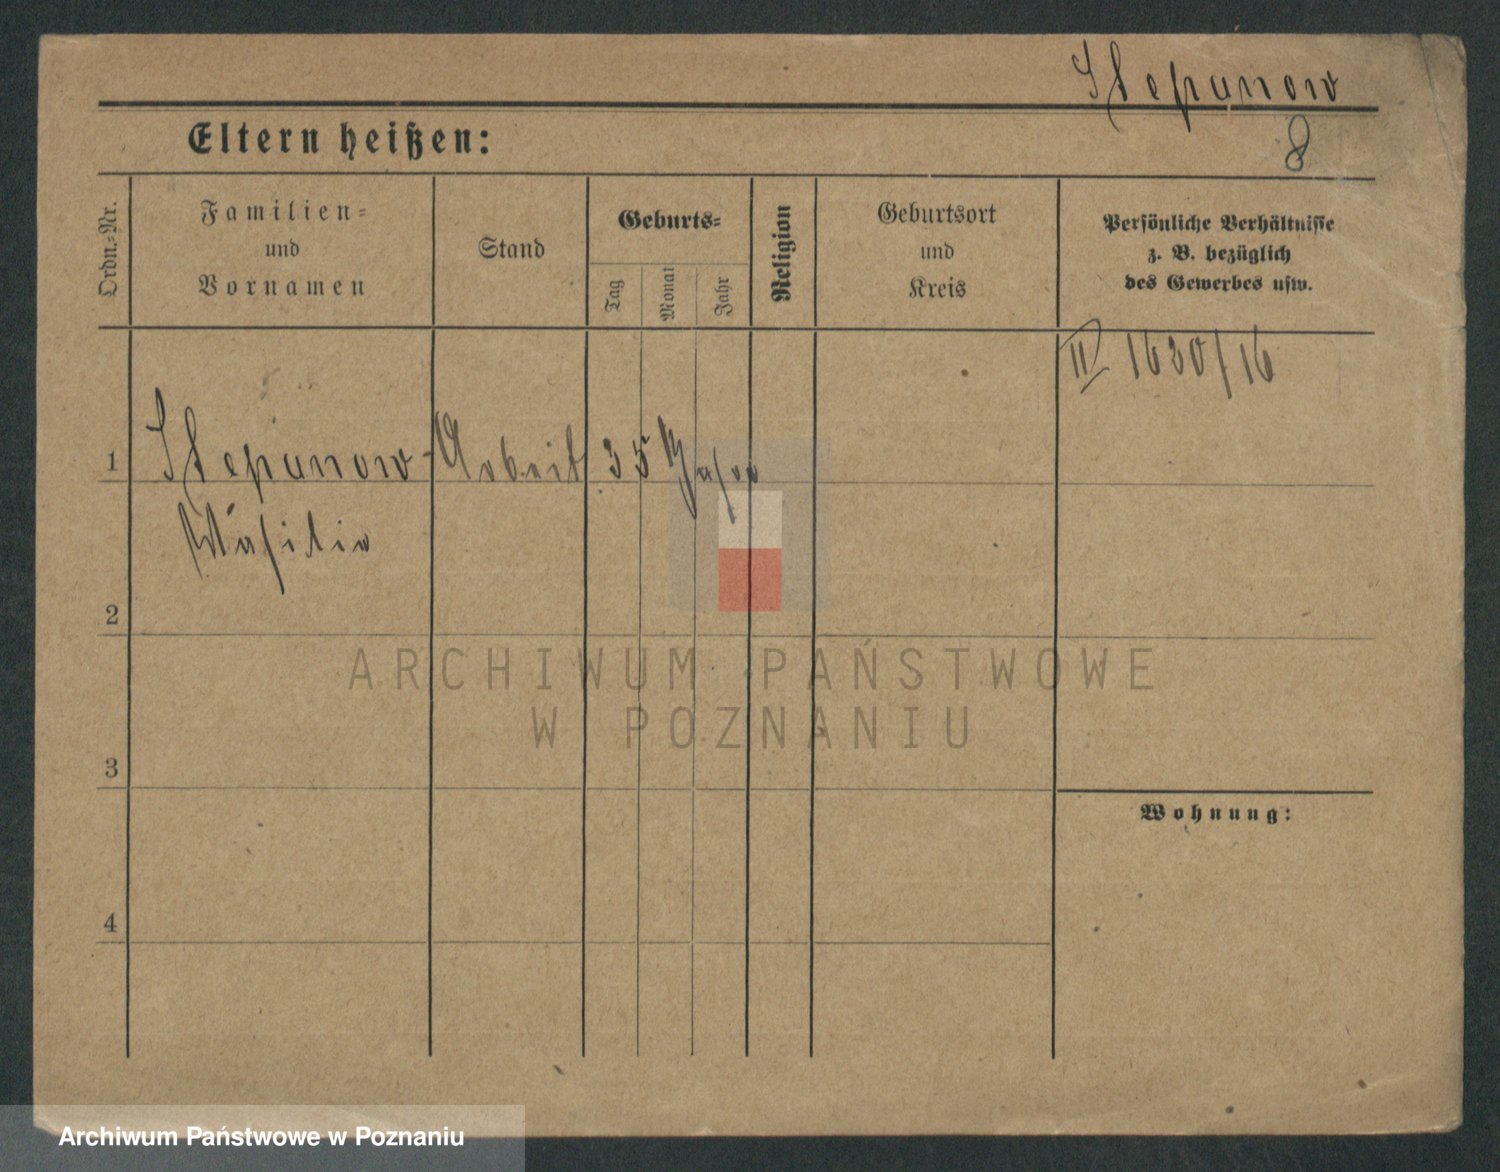 Stepanow
8
Eltern heißen:
Ordn.-Nr.
Familien-
und
Vornamen
Stand
Geburts-
Tag
Monat
Jahr
Religion
Geburtsort
und
Kreis
Persönliche Verhältnisse
z. B. bezüglich
des Gewerbes usw.
II 1630/16
1
Stepanow-
Arbeit
35 Jahre
Wasilio
2
ARCHIWUM PAŃSTWOWE
W POZNANIU
3
Wohnung:
4
Archiwum Państwowe w Poznaniu